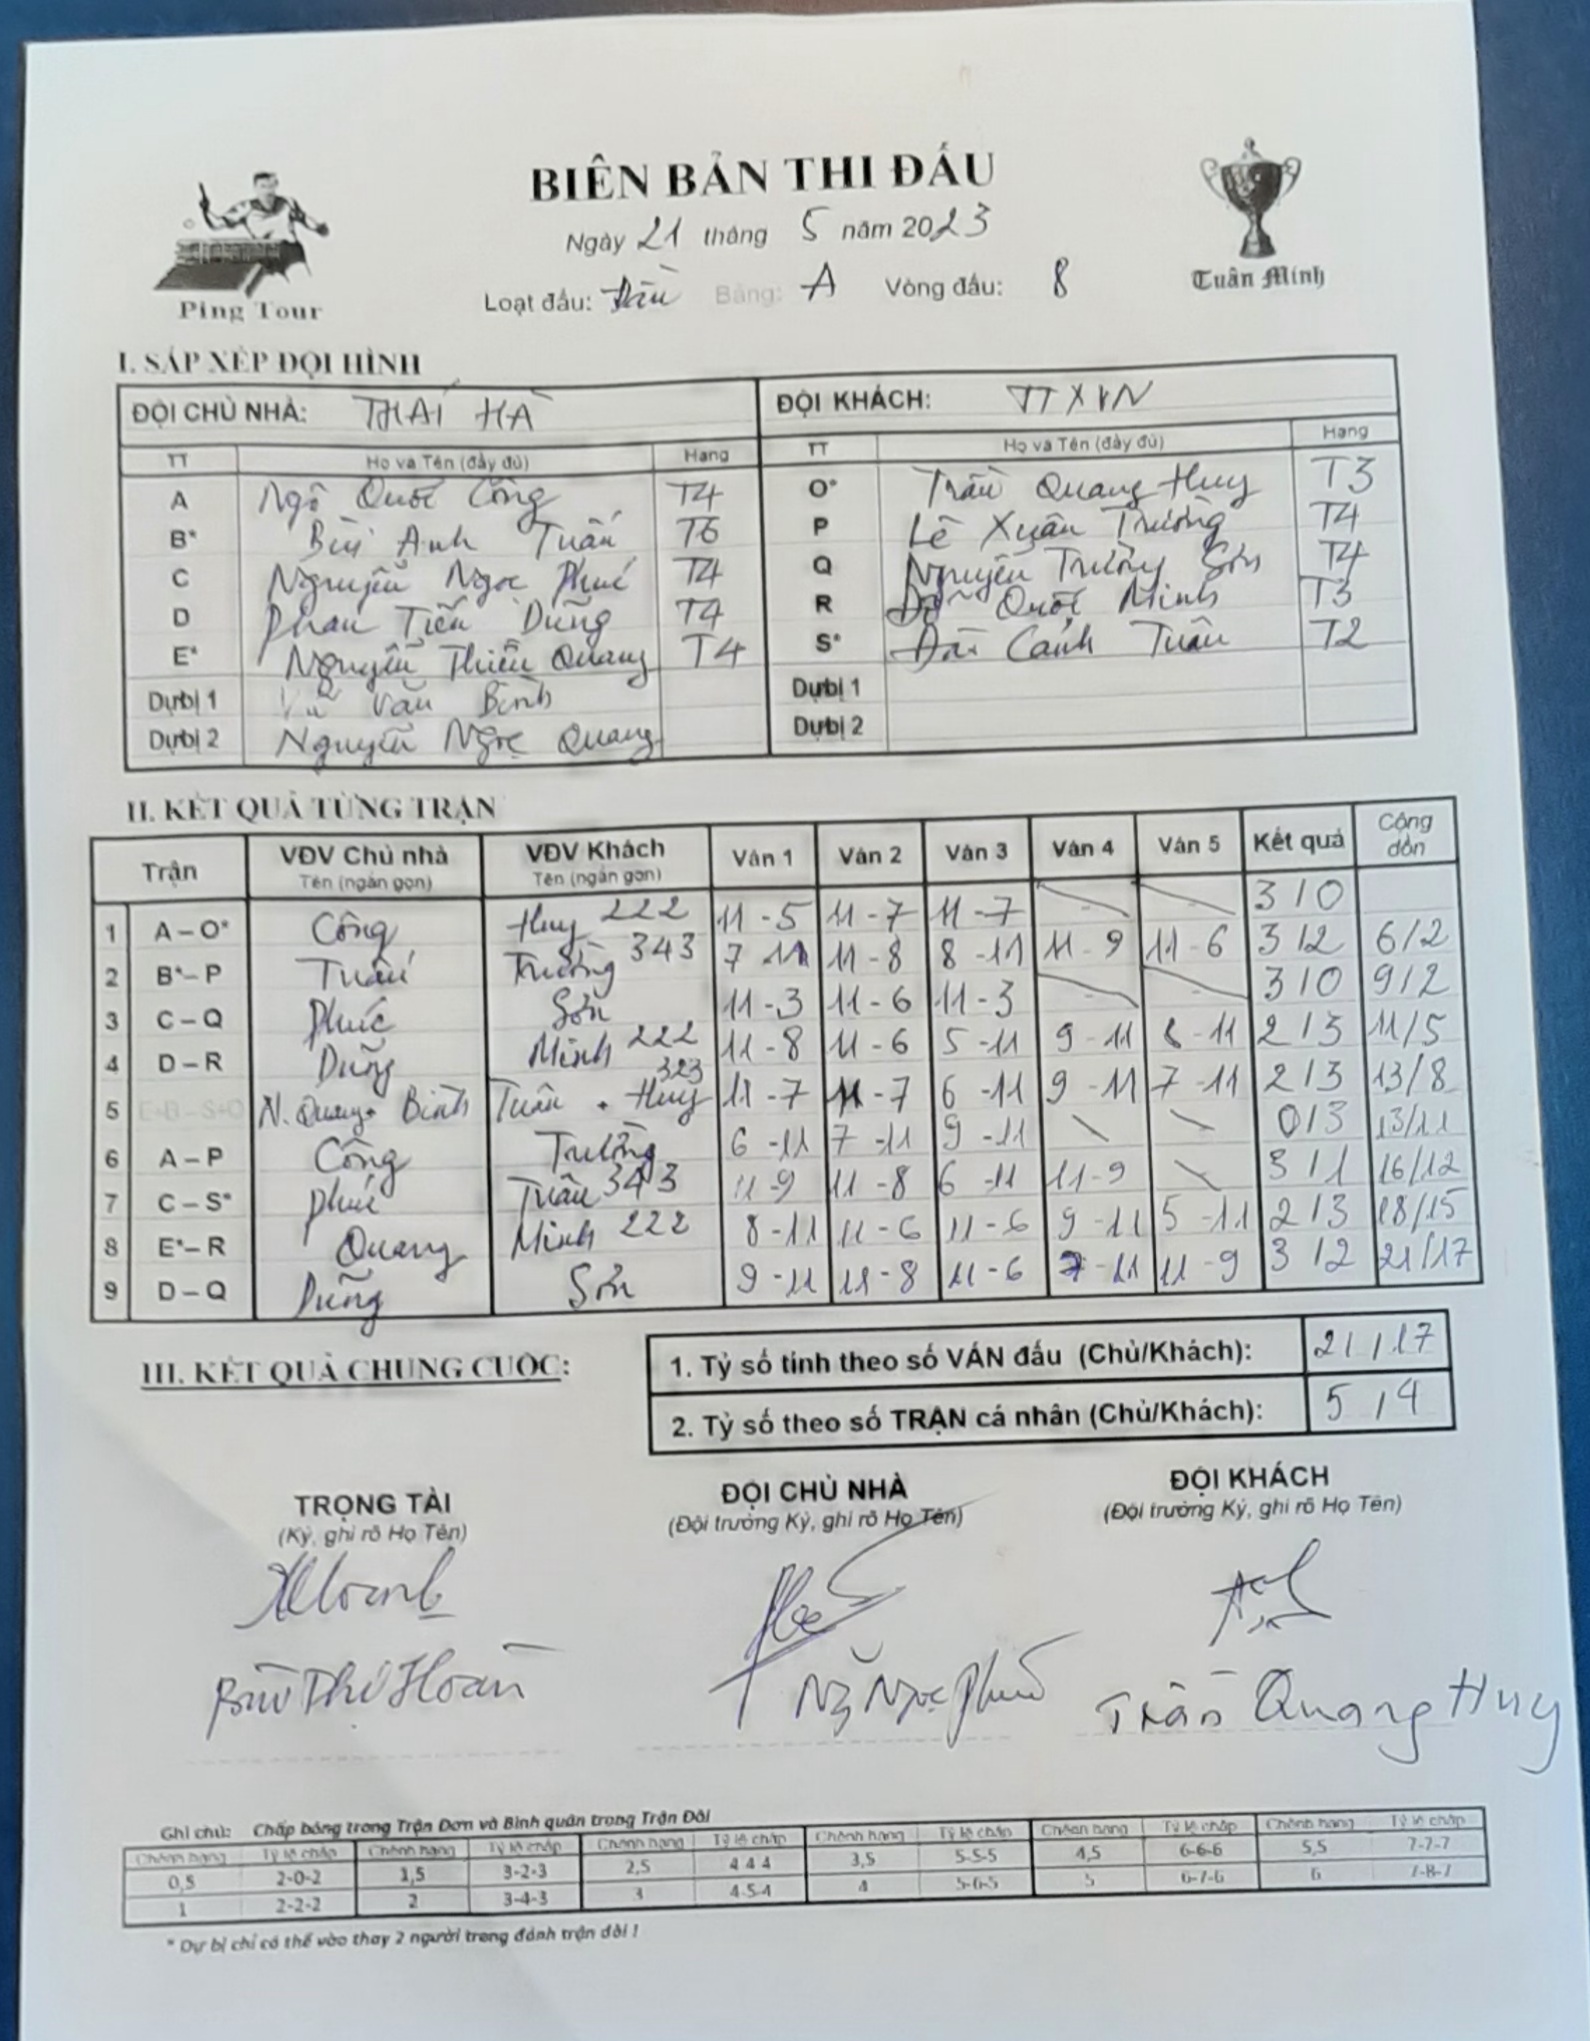 BIÊN BẢN THI ĐẤU
Ngày 21 tháng 5 năm 2023
Loạt đấu: Đầu Bảng: A Vòng đấu: 8
Ping Tour
Tuấn Minh
I. SẮP XẾP ĐỘI HÌNH
ĐỘI CHỦ NHÀ: THÁI HÀ ĐỘI KHÁCH: TTXVN
TT Họ và Tên (đầy đủ) Hạng TT Họ và Tên (đầy đủ) Hạng
A Ngô Quốc Công T4 O* Trần Quang Huy T3
B* Bùi Anh Tuấn T6 P Lê Xuân Trường T4
C Nguyễn Ngọc Phúc T4 Q Nguyễn Trường Sơn T4
D Phan Tiến Dũng T4 R Đỗ Quốc Minh T3
E* Nguyễn Thiều Quang T4 S* Cảnh Tuân T2
Dự bị 1 Vũ Văn Bình Dự bị 1
Dự bị 2 Nguyễn Ngọc Quang Dự bị 2
II. KẾT QUẢ TỪNG TRẬN
Trận VĐV Chủ nhà Tên (ngắn gọn) VĐV Khách Tên (ngắn gọn) Ván 1 Ván 2 Ván 3 Ván 4 Ván 5 Kết quả Cộng dồn
1 A – O* Công Huy 222 11 - 5 11 - 7 11 - 7 - - 3 / 0
2 B* – P Tuấn Trường 343 7 - 11 11 - 8 8 - 11 11 - 9 11 - 6 3 / 2 6/2
3 C – Q Phúc Sơn 11 - 3 11 - 6 11 - 3 - - 3 / 0 9/2
4 D – R Dũng Minh 222 11 - 8 11 - 6 5 - 11 9 - 11 8 - 11 2 / 3 11/5
5 E+B – S+O N. Quang + Bình Tuân + Huy 323 11 - 7 11 - 7 6 - 11 9 - 11 7 - 11 2 / 3 13/8
6 A – P Công Trường 6 - 11 7 - 11 9 - 11 0 / 3 13/11
7 C – S* Phúc Tuân 343 11 - 9 11 - 8 6 - 11 11 - 9 3 / 1 16/12
8 E* – R Quang Minh 222 8 - 11 11 - 6 11 - 6 9 - 11 5 - 11 2 / 3 18/15
9 D – Q Dũng Sơn 9 - 11 11 - 8 11 - 6 7 - 11 11 - 9 3 / 2 21/17
III. KẾT QUẢ CHUNG CUỘC:
1. Tỷ số tính theo số VÁN đấu (Chủ/Khách): 21 / 17
2. Tỷ số theo số TRẬN cá nhân (Chủ/Khách): 5 / 4
TRỌNG TÀI ĐỘI CHỦ NHÀ ĐỘI KHÁCH
(Ký, ghi rõ Họ Tên) (Đội trưởng Ký, ghi rõ Họ Tên) (Đội trưởng Ký, ghi rõ Họ Tên)
Bùi Thị Hoàn Ng Ngọc Phúc Trần Quang Huy
Ghi chú: Chấp bóng trong Trận Đơn và Bình quân trong Trận Đôi
Chênh hạng Tỷ lệ chấp Chênh hạng Tỷ lệ chấp Chênh hạng Tỷ lệ chấp Chênh hạng Tỷ lệ chấp Chênh hạng Tỷ lệ chấp Chênh hạng Tỷ lệ chấp
0,5 2-0-2 1,5 3-2-3 2,5 4-4-4 3,5 5-5-5 4,5 6-6-6 5,5 7-7-7
1 2-2-2 2 3-4-3 3 4-5-4 4 5-6-5 5 6-7-6 6 7-8-7
* Dự bị chỉ có thể vào thay 2 người trong đánh trận đôi !